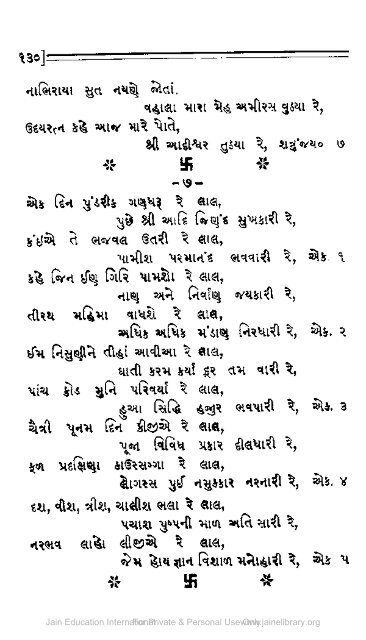 ૧૩૦]
નાભિરાયા સુત નયણે જોતાં.
વહાલા મારા મેહ અમીરસ વુઠયા રે,
ઉદયરત્ન કહે આજ મારે પોતે,
શ્રી આદીશ્વર તુઠયા રે, શત્રુંજય૦ ૭
卐
-૭-
એક દિન પુંડરીક ગણધરૂ રે લાલ,
પુછે શ્રી આદિ જિણંદ સુખકારી રે,
કંઈએ તે ભજવલ ઉતરી રે લાલ,
પામીશ પરમાનંદ ભવવારી રે, એક. ૧
કહે જિન ઈણ ગિરિ પામશો રે લાલ,
નાણ અને નિર્વાણ જયકારી રે,
તીરથ મહિમા વાધશે રે લાલ,
અધિક અધિક મંડાણ નિરધારી રે, એક. ૨
ઈમ નિસુણીને તીહાં આવીઆ રે લાલ,
ઘાતી કરમ કર્યા દૂર તમ વારી રે,
પાંચ ક્રોડ મુનિ પરિવર્યા રે લાલ,
હુઆ સિદ્ધિ હજુર ભવપારી રે, એક. ૩
ચૈત્રી પૂનમ દિન કીજીએ રે લાલ,
પૂજા વિવિધ પ્રકાર દીલધારી રે,
ફળ પ્રદક્ષિણા કાઉસ્સગ્ગા રે લાલ,
લોગસ્સ પુઈ નમુક્કાર નરનારી રે, એક. ૪
દશ, વીશ, ત્રીશ, ચાલીશ ભલા રે લાલ,
પચાશ પુષ્પની માળ અતિ સારી રે,
નરભવ લાહો લીજીએ રે લાલ,
જેમ હોય જ્ઞાન વિશાળ મનોહારી રે, એક ૫
卐
Jain Education International
For Private & Personal Use Only
www.jainelibrary.org